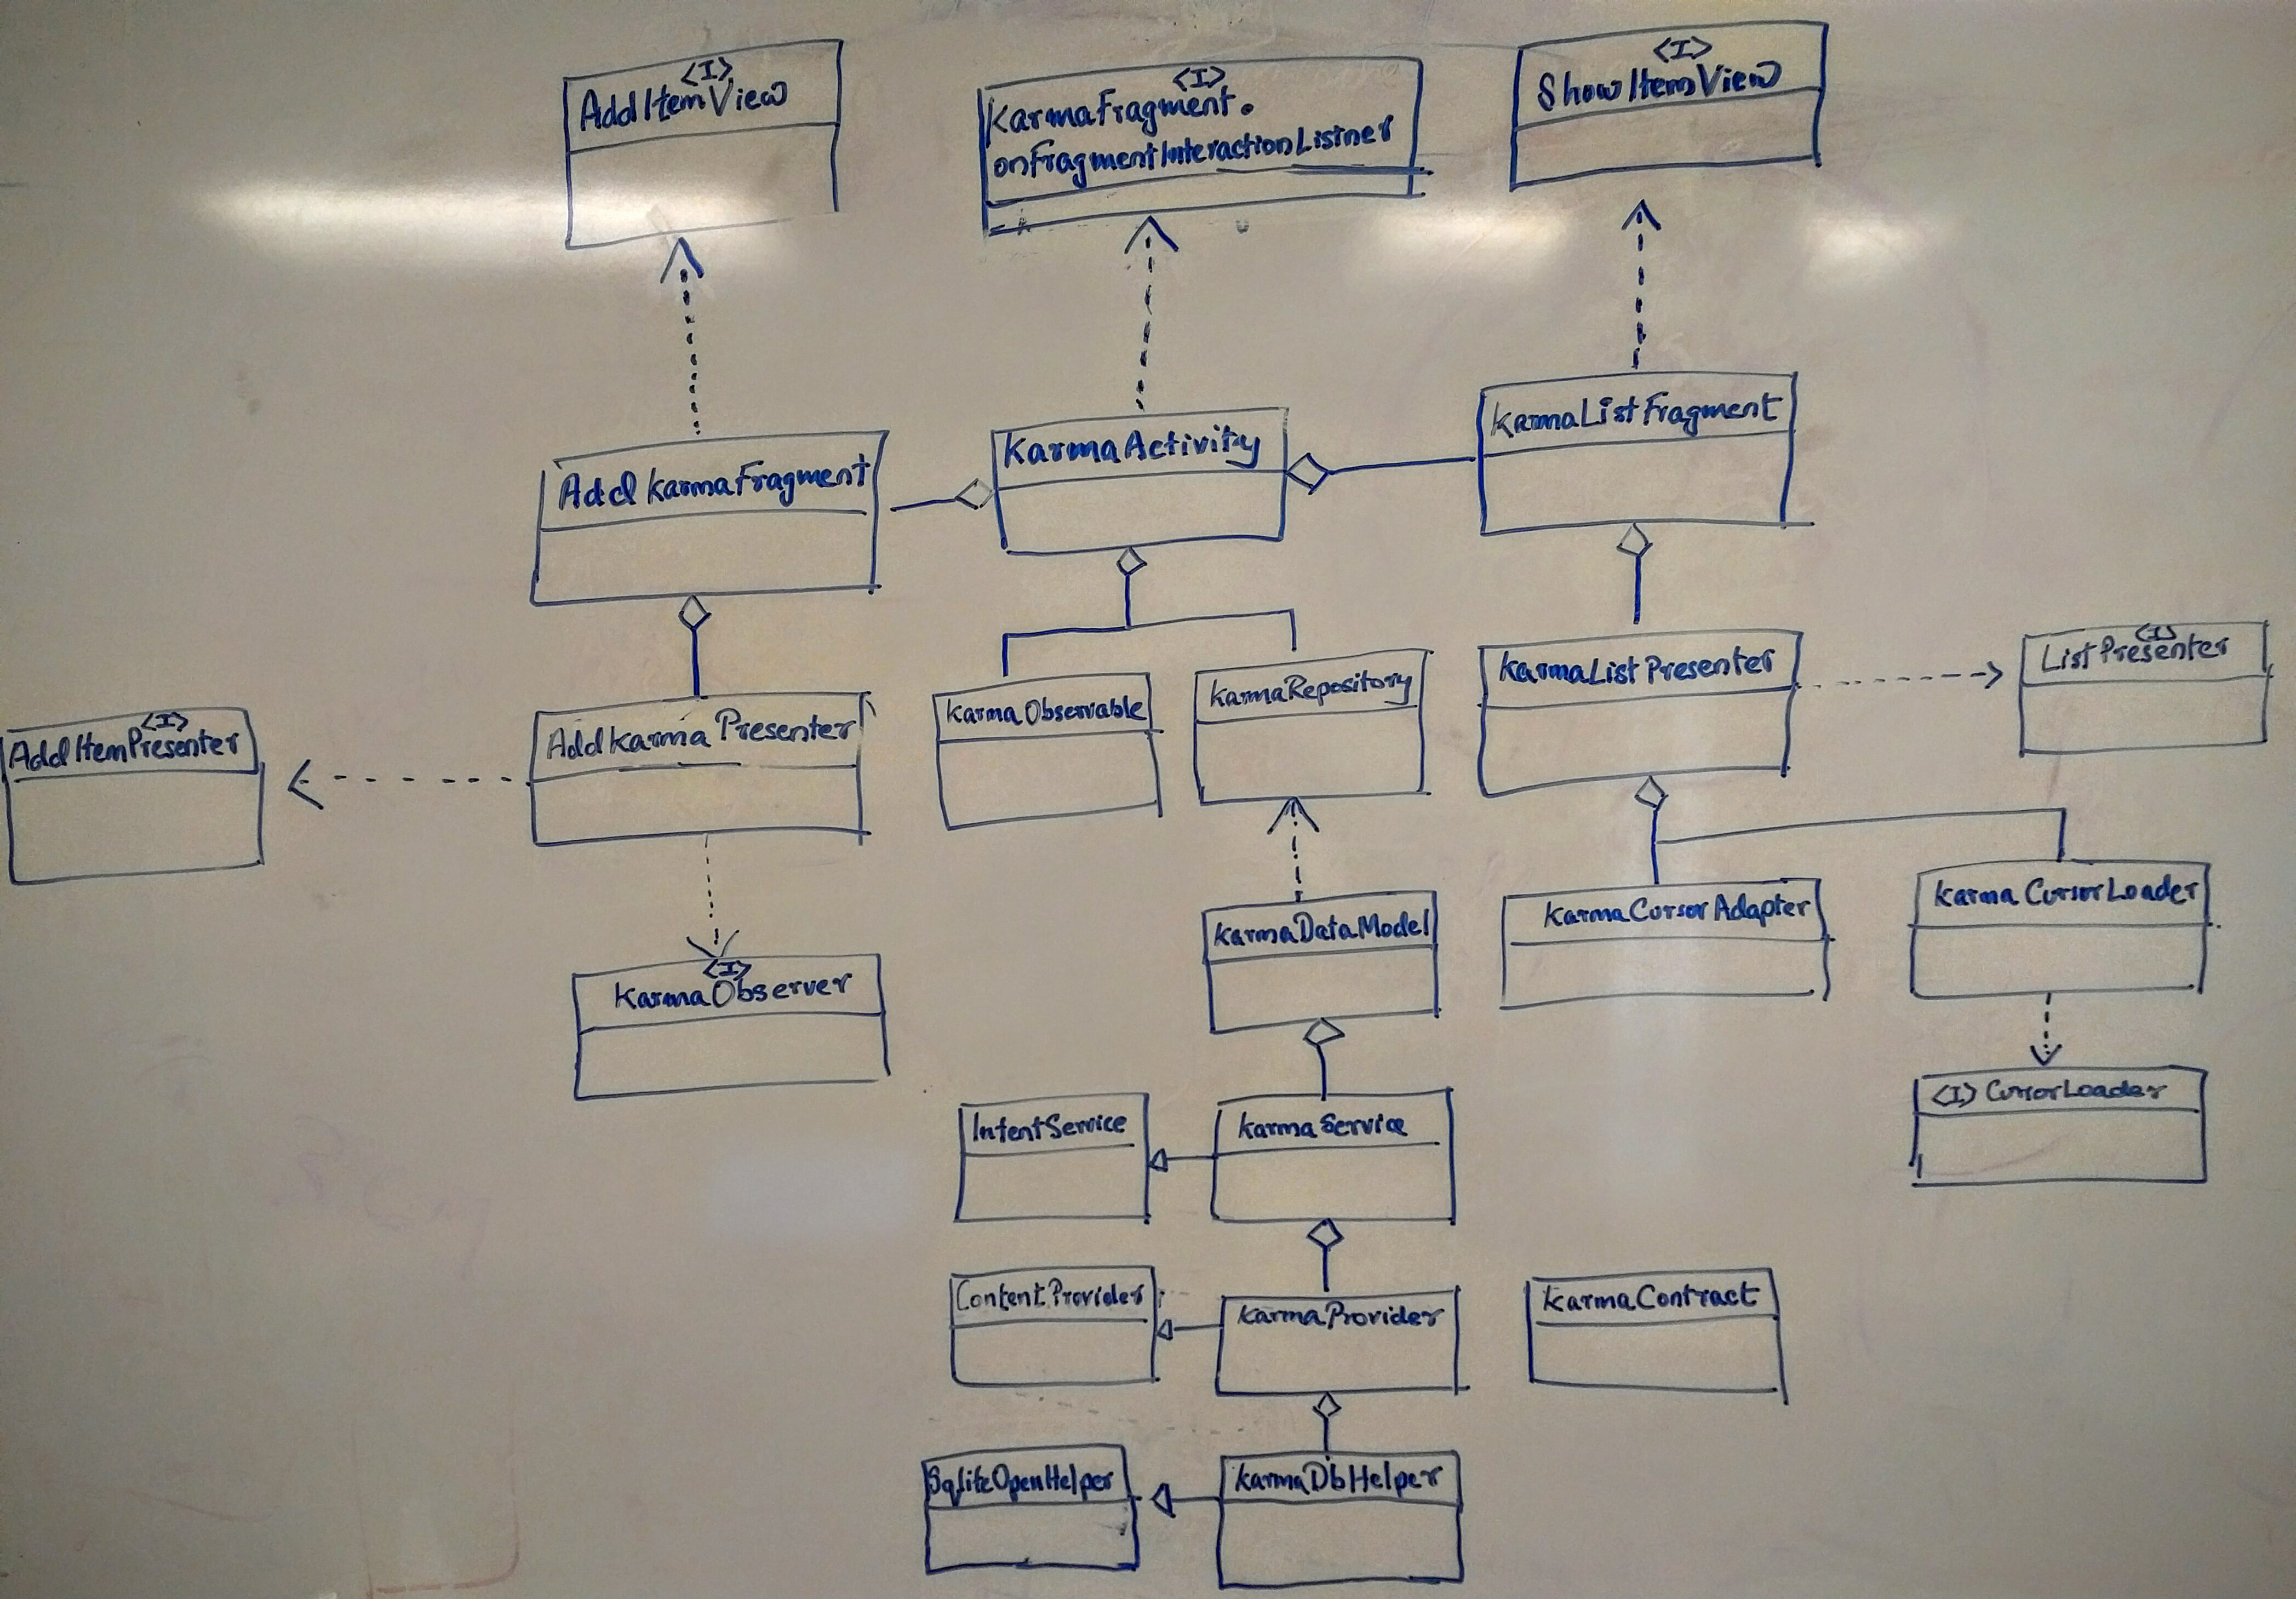 <I>
AddItemView
<I>
KarmaFragment.
onFragmentInteractionListner
<I>
ShowItemView
AddKarmaFragment
KarmaActivity
KarmaListFragment
<I>
AddItemPresenter
AddKarmaPresenter
KarmaObservable
KarmaRepository
KarmaListPresenter
<I>
ListPresenter
<I>
KarmaObserver
KarmaDataModel
KarmaCursorAdapter
KarmaCursorLoader
IntentService
KarmaService
<I> CursorLoader
ContentProvider
KarmaProvider
KarmaContract
SqliteOpenHelper
KarmaDbHelper